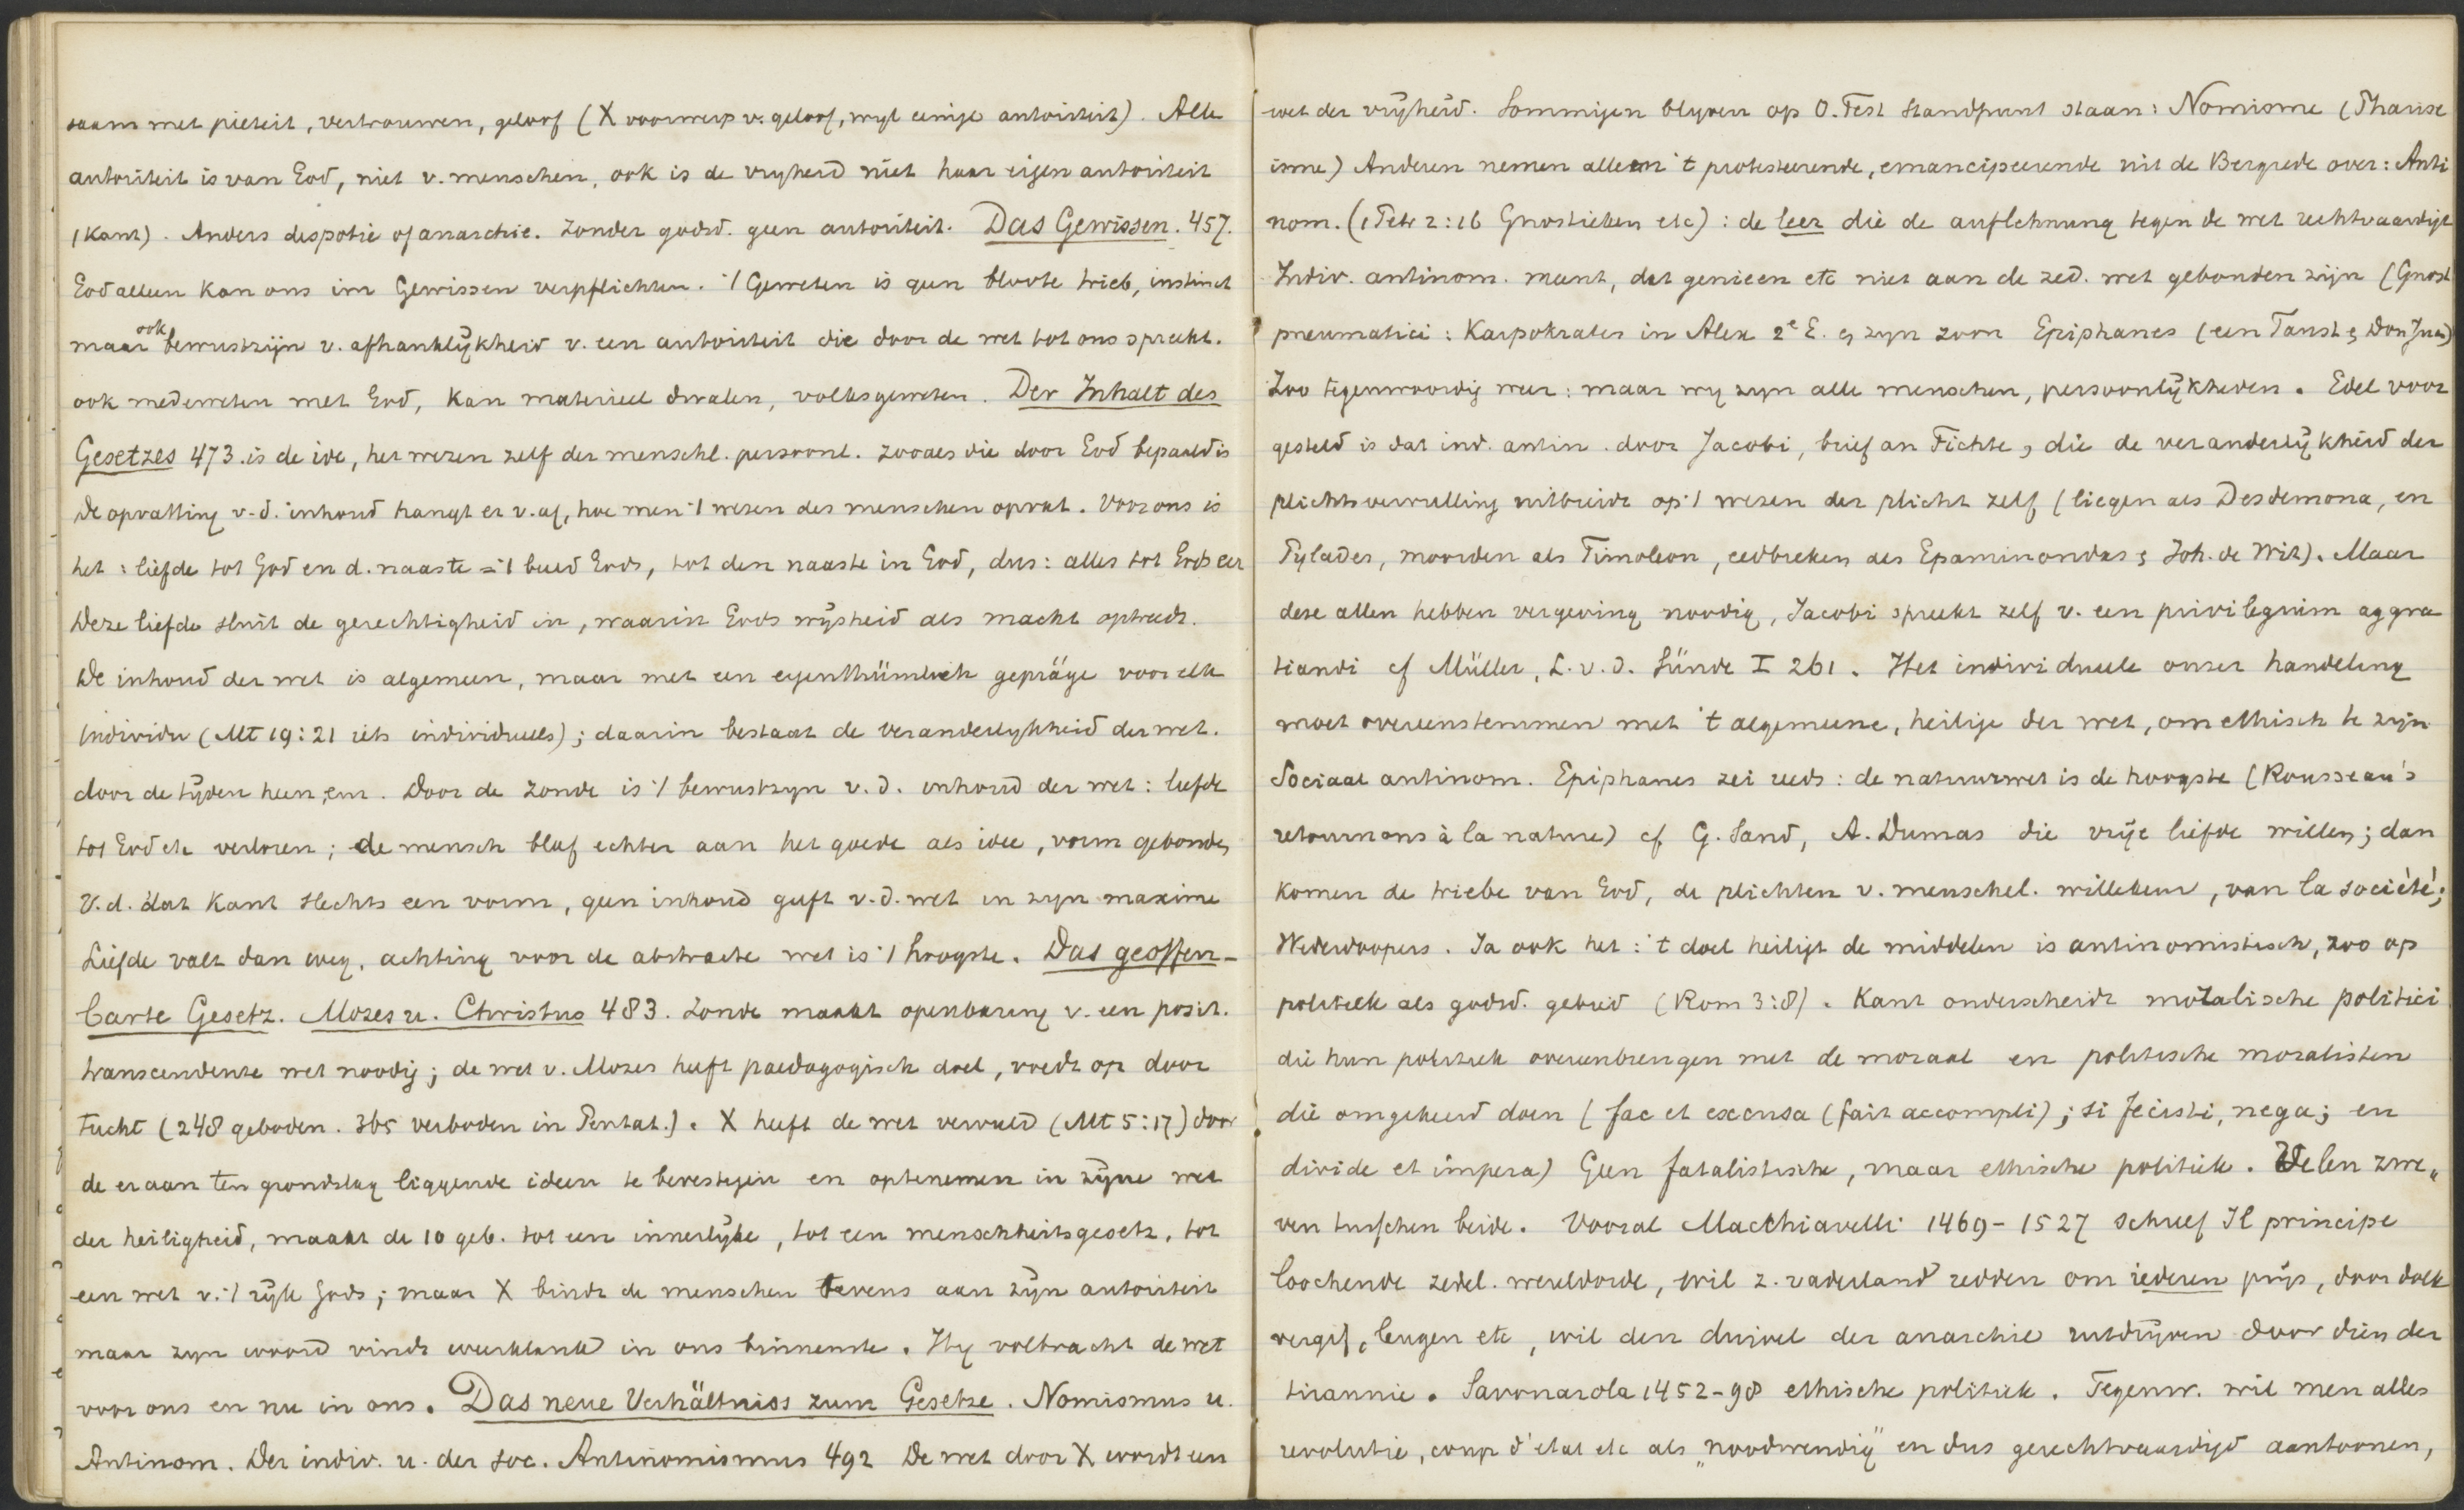 saam met pieteit, vertrouwen, geloof (X voorwerp v. geloof, wyl eenige autoriteit). Alle
autoriteit is van God, niet v. menschen, ook is de vryheid niet haar eigen autoriteit
(Kant). Anders despotie of anarchie. Zonder godsd. geen autoriteit. Das Gewissen. 457.
God alleen kan ons im Gewissen verpflichten. 't Geweten is geen bloote trieb, instinct
maar ook bewustzijn v. afhanklÿkheid v. een autoriteit die door de wet tot ons spreekt.
ook medeweten met God, kan materieel dwalen, volksgeweten. Der Inhalt des
Gesetzes 473. is de idee, het wezen zelf der menschl. persoonl. zooals die door God bepaald is
de opvatting v. d. inhoud hangt er v. af, hoe men 't wezen des menschen opvat. Voor ons is
het: liefde tot God en d. naaste = 't beeld Gods, tot den naaste in God, dus: alles tot Gods eer
Deze liefde sluit de gerechtigheid in, waarin Gods wÿsheid als macht optreedt.
De inhoud der wet is algemeen, maar met een eigenthümlich gepräge voor elk
individu (Mt 19:21 iets individueels); daarin bestaat de veranderlykheid der wet.
door de tÿden heen, enz. Door de zonde is 't bewustzyn v. d. inhoud der wet: liefde
tot God etc verloren; de mensch bleef echter aan het goede als idee, vorm gebonden
V. d. dat Kant slechts een vorm, geen inhoud geeft v. d. wet in zyn maxime
Liefde valt dan weg, achting voor de abstracte wet is 't hoogste. Das geoffen-
barte Gesetz. Mozes u. Christus 483. Zonde maakt openbaring v. een posit.
transcendente wet noodig; de wet v. Mozes heeft paedagogisch doel, voedt op door
tucht (248 geboden. 365 verboden in Pentat.). X heeft de wet vervuld (Mt 5:17) door
de eraan ten grondslag liggende ideen te bevestigen en optenemen in zÿne wet
der heiligheid, maakt de 10 geb. tot een innerlÿke, tot een menschheitsgesetz, tot
een wet v. 't rÿk Gods; maar X bindt de menschen tevens aan zÿn autoriteit
maar zyn woord vindt weerklank in ons binnenste. Hy volbracht de wet
voor ons en nu in ons. Das neue Verhältniss zum Gesetze. Nomismus u.
Antinom. Der indiv. u. der soc. Antinomismus 492 De wet door X wordt een
wet der vrÿheid. Sommigen blyven op O. Test standpunt staan: Nomisme (Pharise
isme) Anderen nemen alleen 't protesteerende, emancipeerende uit de Bergrede over: Anti
nom. (1 Petr 2:16 Gnostieken etc): de leer die de auflehnung tegen de wet rechtvaardigt
Indiv. antinom. meent, dat genieen etc niet aan de zed. wet gebonden zijn (Gnost
pneumatici: Karpokrates in Alex 2e E. en zyn zoon Epiphanes (een Faust en Don Juan)
Zoo tegenwoordig weer: maar wy zyn alle menschen, persoonlÿkheden. Edel voor
gesteld is dat ind. antin. door Jacobi, brief an Fichte, die de veranderlÿkheid der
plichtsvervulling uitbreidt op 't wezen der plicht zelf (liegen als Desdemona, en
Pylades, moorden als Timoleon, eedbreken als Epaminondas en Joh. de Wit). Maar
deze allen hebben vergeving noodig, Jacobi spreekt zelf v. een privilegium aggra
tiandi cf Müller, L. v. d. Sünde I 261. Het individueele onzer handeling
moet overeenstemmen met 't algemeene, heilige der wet, om ethisch te zyn
Sociaal antinom. Epiphanes zei reeds: de natuurwet is de hoogste (Rousseau's
retournons à la nature) cf G. Sand, A. Dumas die vrÿe liefde willen; dan
komen de triebe van God, de plichten v. menschel. willekeur, van la société;
Wederdoopers. Ja ook het: 't doel heiligt de middelen is antinomistisch, zoo op
politiek als godsd. gebied (Rom 3:8). Kant onderscheidt moralische politici
die hun politiek overeenbrengen met de moraal en politische moralisten
die omgekeerd doen (fac et excusa (fait accompli); si fecisti, nega; en
divide et impera) Geen fatalistische, maar ethische politiek. Velen zwe„
ven tusschen beide. Vooral Macchiavelli 1469-1527 schreef Il principe
loochende zedel. wereldorde, wil z. vaderland redden om iederen prÿs, door dolk
vergif, leugen etc, wil den duivel der anarchie uitdrÿven door dien der
tirannie. Savonarola 1452-98 ethische politiek. Tegenw. wil men alles
revolutie, coup d'etat etc als „noodwendig" en dus gerechtvaardigd aantoonen,